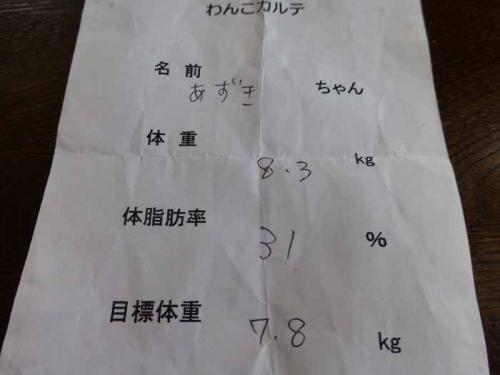 わんこカルテ
名前 あずき ちゃん
体重 8.3 kg
体脂肪率 31 %
目標体重 7.8 kg